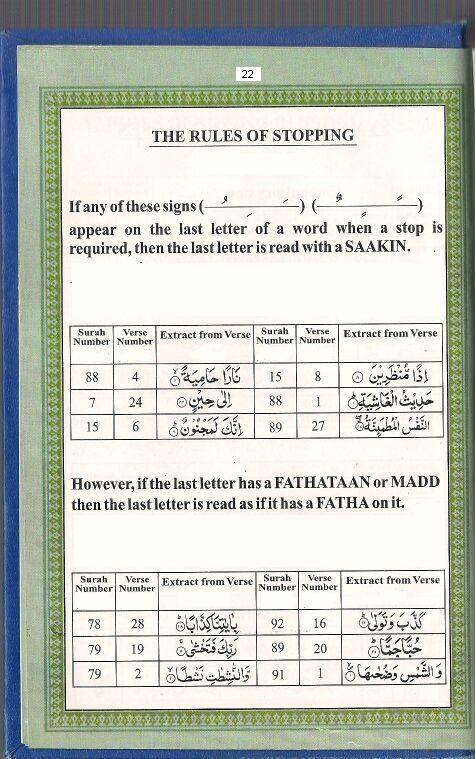 22
THE RULES OF STOPPING
If any of these signs (—ُ—ِ—َ—) (—ٌ—ٍ—ً—)
appear on the last letter of a word when a stop is
required, then the last letter is read with a SAAKIN.
Surah Number Verse Number Extract from Verse Surah Number Verse Number Extract from Verse
88 4 نَارًا حَامِيَةً 15 8 اِذًا مُّنْظَرِيْنَ
7 24 اِلٰى حِيْنٍ 88 1 حَدِيْثُ الْغَاشِيَةِ
15 6 اِنَّكَ لَمَجْنُوْنٌ 89 27 النَّفْسُ الْمُطْمَىِٕنَّةُ
However, if the last letter has a FATHATAAN or MADD
then the last letter is read as if it has a FATHA on it.
Surah Number Verse Number Extract from Verse Surah Number Verse Number Extract from Verse
78 28 بِاٰيٰتِنَا كِذَّابًا 92 16 كَذَّبَ وَتَوَلّٰى
79 19 رَبِّكَ فَتَخْشٰى 89 20 حُبًّا جَمًّا
79 2 وَّالنّٰشِطٰتِ نَشْطًا 91 1 وَالشَّمْسِ وَضُحٰىهَا